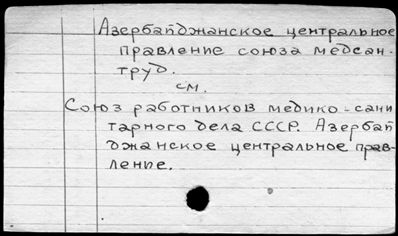 Азербайджанское центральное
правление союза медсан-
труд.
см.
Союз работников медико-сани
тарного дела СССР. Азербай
джанское центральное прав-
ление.